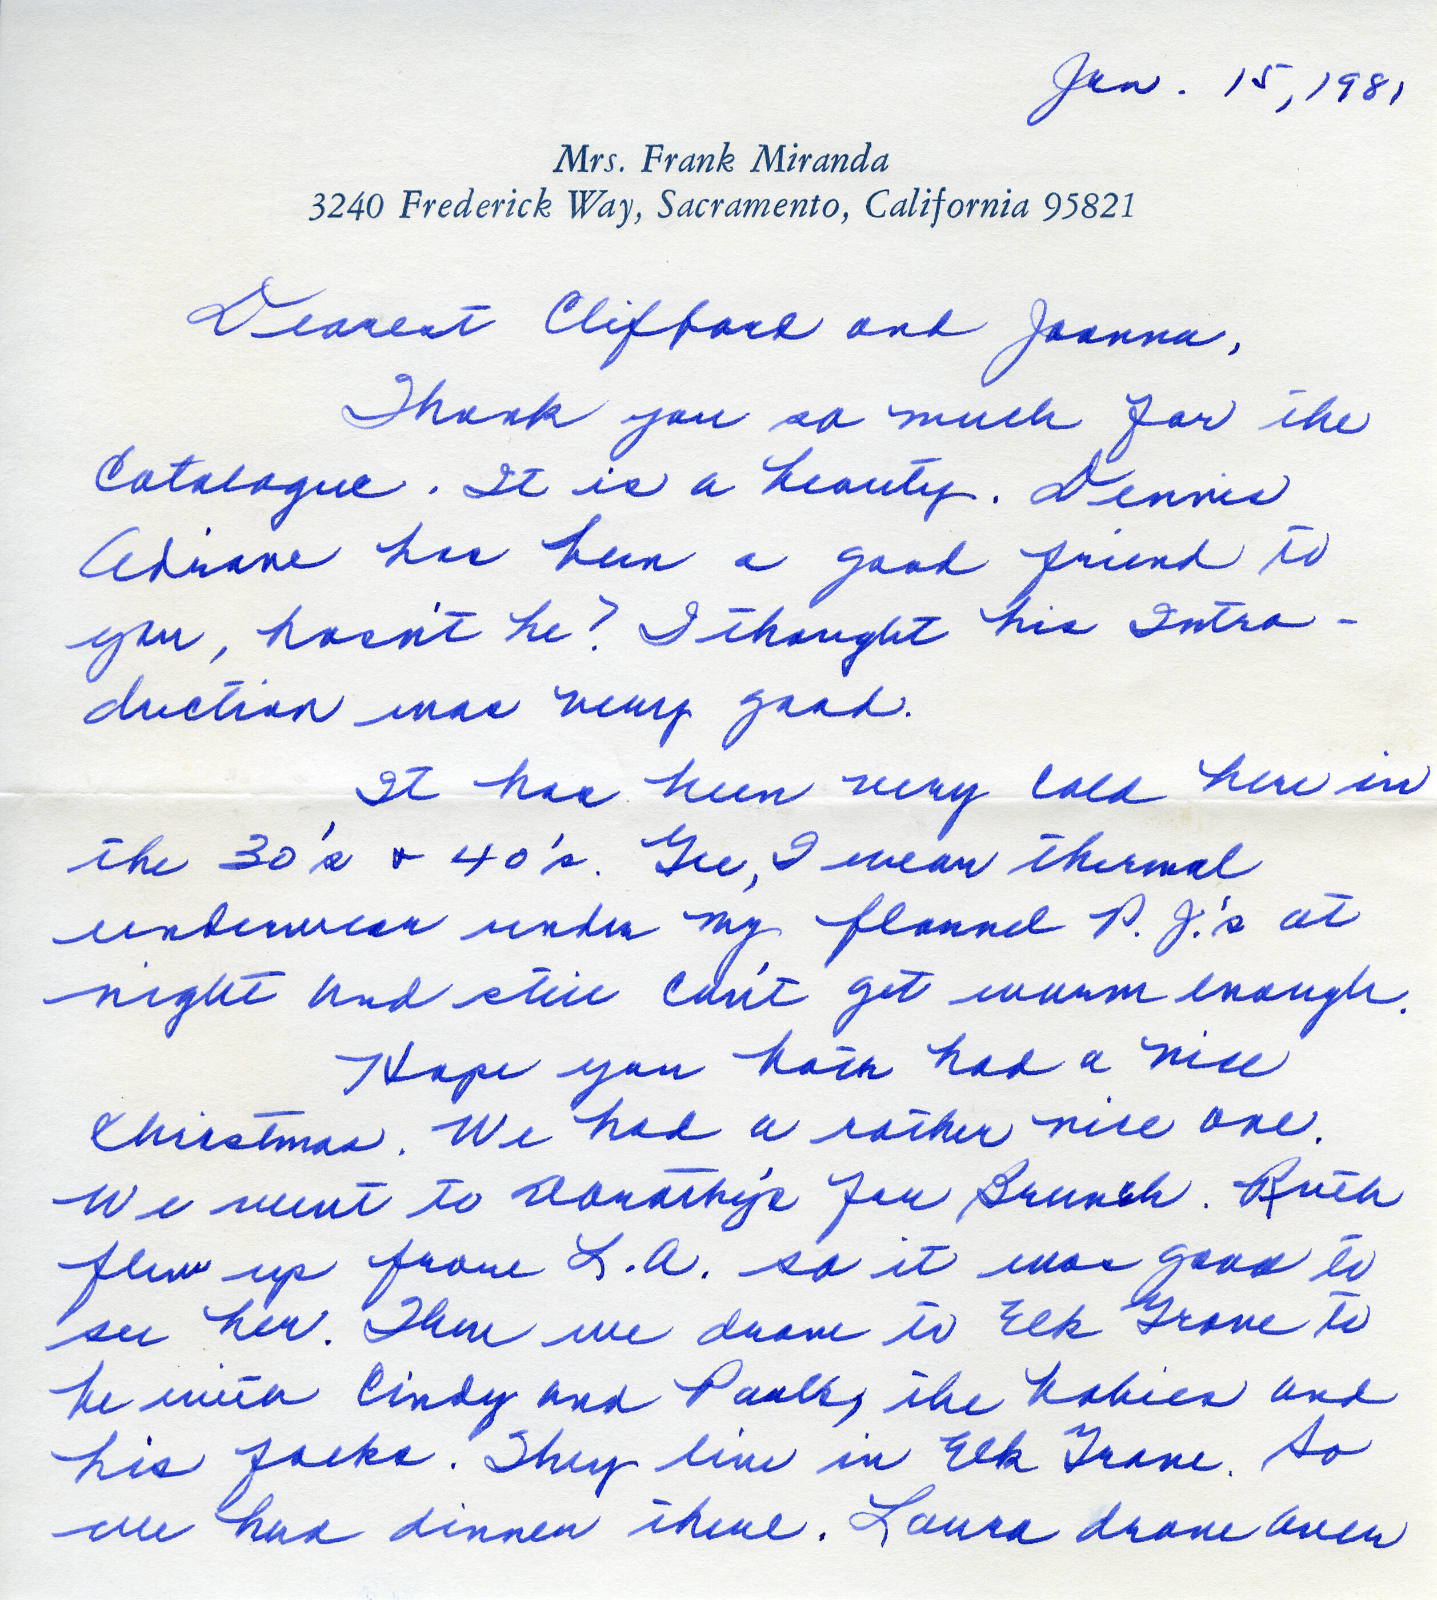 Jan. 15, 1981
Mrs. Frank Miranda
3240 Frederick Way, Sacramento, California 95821
Dearest Clifford and Joanna,
Thank you so much for the
Catalogue. It is a beauty. Dennis
Adriane has been a good friend to
you, hasn't he? I thought his Intro-
duction was very good.
It has been very cold here in
the 30's & 40's. Gee, I wear thermal
underwear under my flannel P. J.'s at
night and still can't get warm enough.
Hope you both had a nice
Christmas. We had a rather nice one.
We went to Dorothy's for Brunch. Ruth
flew up from L.A. so it was good to
see her. Then we drove to Elk Grove to
be with Cindy and Paul, the babies and
his folks. They live in Elk Grove. So
we had dinner there. Laura drove over